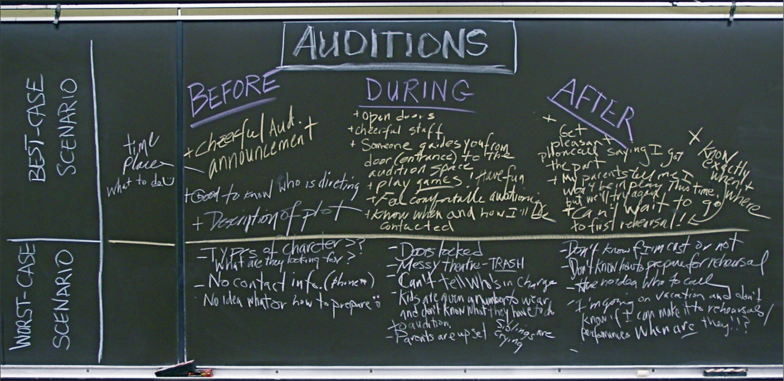 AUDITIONS
BEST-CASE
SCENARIO
time
place
what to do
BEFORE
+ Cheerful Aud.
announcement
+ Good to know who is directing
+ Description of plot
DURING
+ open doors
+ cheerful staff
+ Someone guides you from
door (entrance) to the
audition space
+ play games! Have fun
+ Feel comfortable auditioning
+ Know when and how I'll be
contacted
AFTER
+ Get
pleasant
phonecall saying I got
the part
+ My parents tell me I
won't be in play this time,
but we'll try again
+ Can't wait to go
to first rehearsal!
+ Know
exactly
when &
where
WORST-CASE
SCENARIO
- Types of charcters??
What are they looking for?
- No contact info. (phone #)
No idea what or how to prepare
- Doors locked
- Messy theatre - TRASH
- Can't tell who's in charge
- Kids are given a number to wear
and don't know what they have to do
to audition
- Parents are upset Siblings are
crying
- Don't know if I'm cast or not
- Don't know how to prepare for rehearsal
- no idea who to call
- I'm going on vacation and don't
know if I can make it to rehearsals/
performances when are they!!?